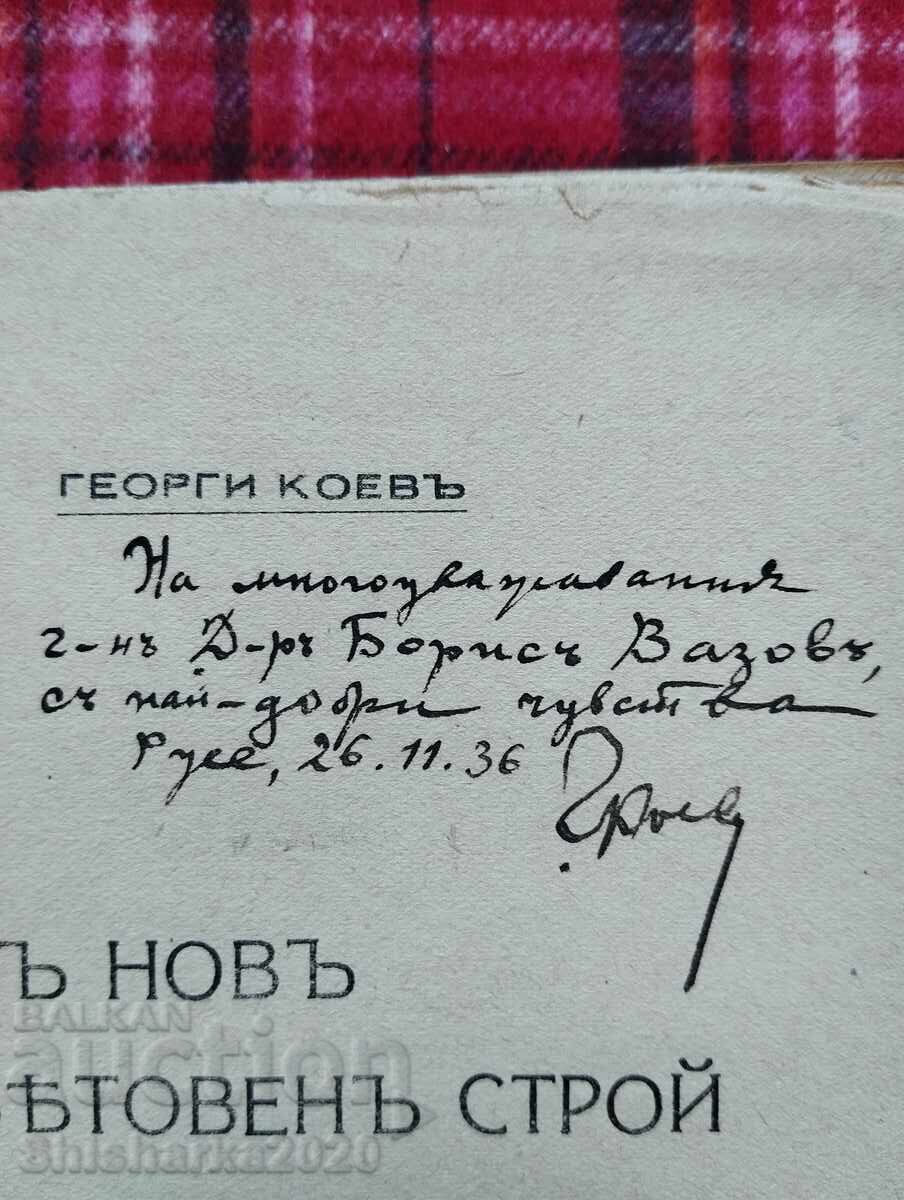 ГЕОРГИ КОЕВЪ
На многоуважавания
г-нъ Д-ръ Борисъ Вазовъ,
съ най-добри чувства
Русе, 26.11.36
Ъ НОВЪ
ѢТОВЕНЪ СТРОЙ
BALKAN
auction
Shisharka2020